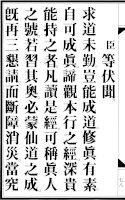 臣等伏聞
求道未勤豈能成道修真有素
自可成眞諦觀本行之經深貴
能持之者凡讀是經可稱眞人
之號若習其奧必蒙仙道之成
旣再三懇請而斷障消災當究